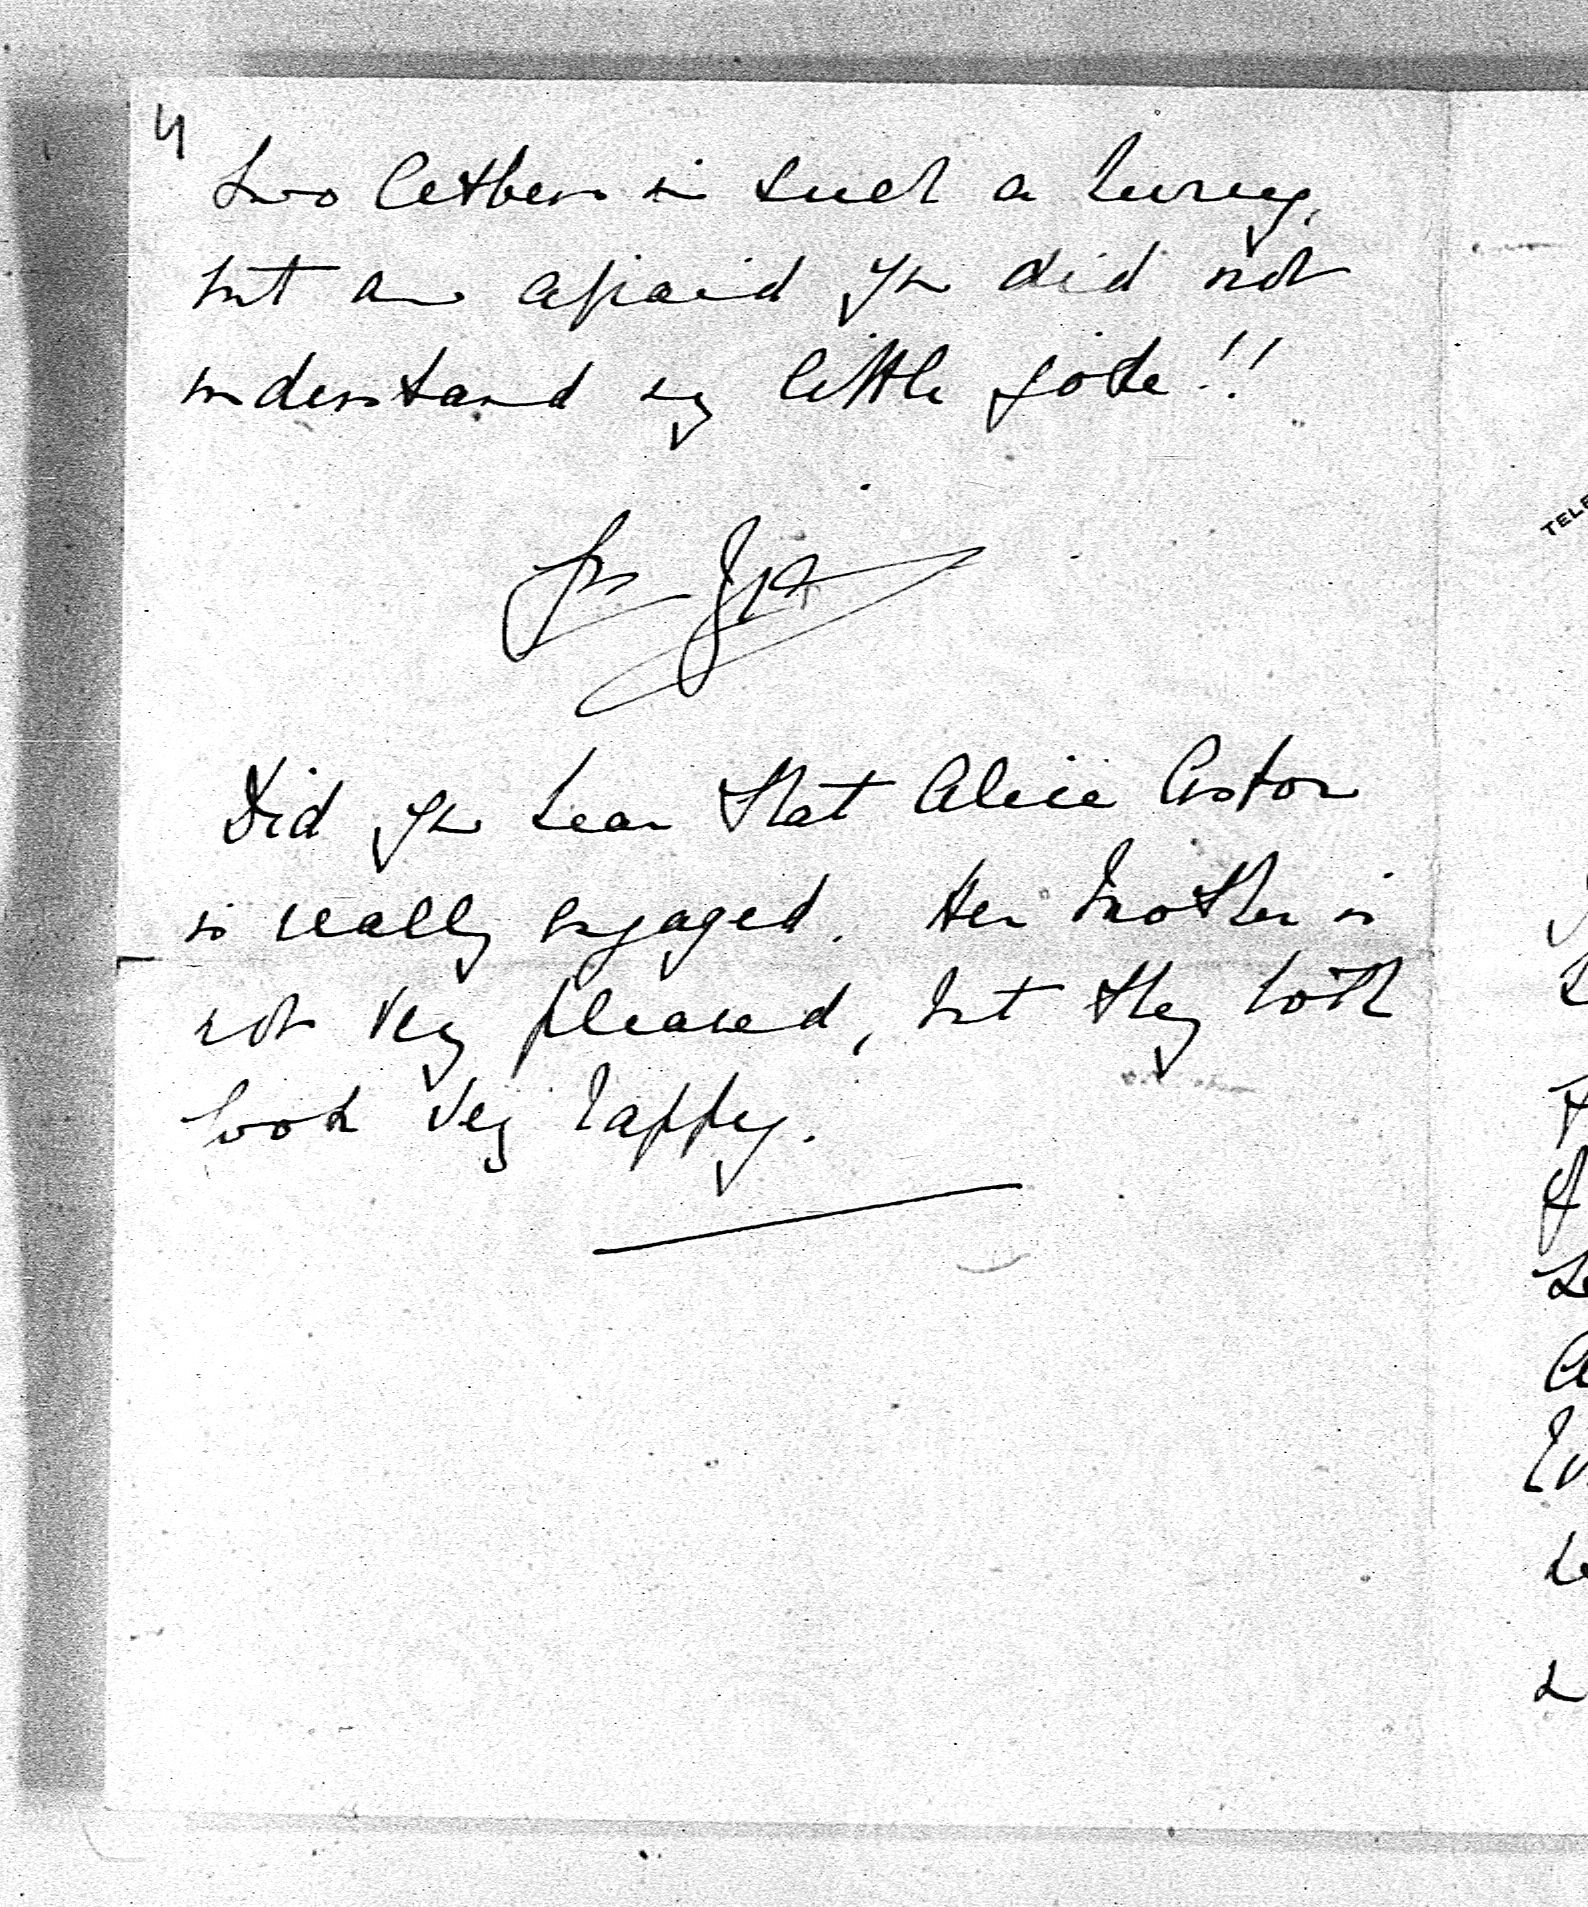 4
two letters in such a hurry,
but am afraid you did not
understand my little joke!!
Did you hear that Alice Astor
is really engaged. Her Mother is
not very pleased, but they both
look very happy.
TELE